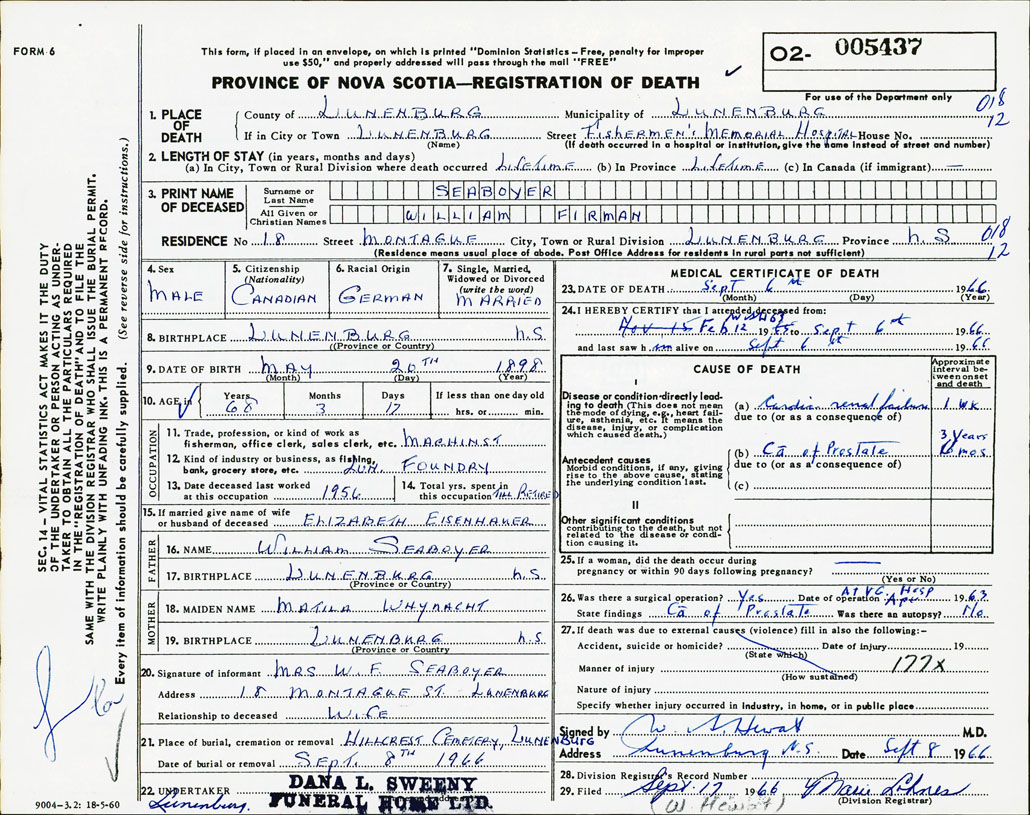 FORM 6
This form, if placed in an envelope, on which is printed "Dominion Statistics – Free, penalty for improper
use $50," and properly addressed will pass through the mail "FREE"
PROVINCE OF NOVA SCOTIA—REGISTRATION OF DEATH
O2- 005437
For use of the Department only
018
12
1. PLACE OF DEATH
County of LUNENBURG Municipality of LUNENBURG
If in City or Town LUNENBURG Street FISHERMEN'S MEMORIAL HOSPITAL House No.
(Name) (If death occurred in a hospital or institution, give the name instead of street and number)
2. LENGTH OF STAY (in years, months and days)
(a) In City, Town or Rural Division where death occurred LIFETIME (b) In Province LIFETIME (c) In Canada (if immigrant) —
3. PRINT NAME OF DECEASED
Surname or Last Name SEABOYER
All Given or Christian Names WILLIAM FIRMAN
RESIDENCE No 18 Street MONTAGUE City, Town or Rural Division LUNENBURG Province N.S
018
12
(Residence means usual place of abode. Post Office Address for residents in rural parts not sufficient)
4. Sex MALE
5. Citizenship (Nationality) CANADIAN
6. Racial Origin GERMAN
7. Single, Married, Widowed or Divorced (write the word) MARRIED
8. BIRTHPLACE LUNENBURG N.S
(Province or Country)
9. DATE OF BIRTH MAY 20TH 1898
(Month) (Day) (Year)
10. AGE in Years 68 Months 3 Days 17 If less than one day old hrs. or min.
OCCUPATION
11. Trade, profession, or kind of work as
fisherman, office clerk, sales clerk, etc. MACHINST
12. Kind of industry or business, as fishing,
bank, grocery store, etc. LUN. FOUNDRY
13. Date deceased last worked at this occupation 1956
14. Total yrs. spent in this occupation TILL RETIRED
15. If married give name of wife
or husband of deceased ELIZABETH EISENHAUER
FATHER
16. NAME WILLIAM SEABOYER
17. BIRTHPLACE LUNENBURG N.S
(Province or Country)
MOTHER
18. MAIDEN NAME MATILA WHYNACHT
19. BIRTHPLACE LUNENBURG N.S
(Province or Country
20. Signature of informant MRS W. F. SEABOYER
Address 18 MONTAGUE ST LUNENBURG
Relationship to deceased WIFE
21. Place of burial, cremation or removal HILLCREST CEMETERY, LUNENBURG
Date of burial or removal SEPT. 8TH 1966
22. UNDERTAKER DANA L. SWEENY
Lunenburg. FUNERAL HOME LTD.
MEDICAL CERTIFICATE OF DEATH
23. DATE OF DEATH Sept 6th 1966
(Month) (Day) (Year)
24. I HEREBY CERTIFY that I attended deceased from:
Feb 12 19 to Sept 6 1966
and last saw h im alive on Sept 6 1966
CAUSE OF DEATH
Approximate interval between onset and death
I
Disease or condition directly leading to death (This does not mean
the mode of dying, e.g., heart failure, asthenia, etc. It means the
disease, injury, or complication which caused death.)
(a) Cardian renal failure 1 wk
due to (or as a consequence of)
Antecedent causes
Morbid conditions, if any, giving
rise to the above cause, stating
the underlying condition last.
(b) Ca of Prostate 3 years mos
due to (or as a consequence of)
(c)
II
Other significant conditions
contributing to the death, but not
related to the disease or condition causing it.
25. If a woman, did the death occur during
pregnancy or within 90 days following pregnancy? —
(Yes or No)
26. Was there a surgical operation? Yes Date of operation At V.G. Hosp Apr 1963
State findings Ca of Prostate Was there an autopsy? No
27. If death was due to external causes (violence) fill in also the following:–
Accident, suicide or homicide? Date of injury 19
(State which)
Manner of injury 177x
(How sustained)
Nature of injury
Specify whether injury occurred in industry, in home, or in public place
Signed by W. A. Hewat M.D.
Address Lunenburg N.S. Date Sept 8 1966
28. Division Registrar's Record Number
29. Filed Sept. 17 1966 Marie Lohnes
(W. Hewat) (Division Registrar)
SEC. 14 – VITAL STATISTICS ACT MAKES IT THE DUTY
OF THE UNDERTAKER OR PERSON ACTING AS UNDERTAKER TO OBTAIN ALL THE PARTICULARS REQUIRED
IN THE "REGISTRATION OF DEATH" AND TO FILE THE
SAME WITH THE DIVISION REGISTRAR WHO SHALL ISSUE THE BURIAL PERMIT.
WRITE PLAINLY WITH UNFADING INK. THIS IS A PERMANENT RECORD.
Every item of information should be carefully supplied. (See reverse side for instructions.)
9004–3.2: 18-5-60